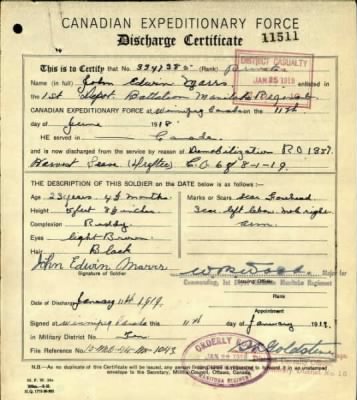 CANADIAN EXPEDITIONARY FORCE
Discharge Certificate
11511
DISTRICT CASUALTY
JAN 25 1919
This is to Certify that No. (Rank) Private
Name (in full) John Edwin enlisted in
1st Depot Battalion Manitoba Regiment
CANADIAN EXPEDITIONARY FORCE at Winnipeg Canada on the 11th
day of June 1918.
HE served in Canada
and is now discharged from the service by reason of Demobilization R.O 1357.
Harvest Leave (Draftee) C.O. 6 of 8-1-19.
THE DESCRIPTION OF THIS SOLDIER on the DATE below is as follows:—
Age 23 years. 4 months
Height 5 feet 8½ inches.
Complexion Ruddy
Eyes light Brown
Hair Black
Marks or Scars Scar forehead
Scar left
arm.
John Edwin
Signature of Soldier
Major for
Issuing Officer
Commanding, 1st Depot Battalion Manitoba Regiment
Date of Discharge January 11th 1919.
Signed at Winnipeg Canada this 11th day of January 1919.
in Military District No. Ten
File Reference No.
ORDERLY ROOM
MANITOBA REGIMENT
District No 10
N.B.—As no duplicate of this Certificate will be issued, any person finding same is requested to forward it in an unstamped
envelope to the Secretary, Militia Council, Ottawa, Canada.